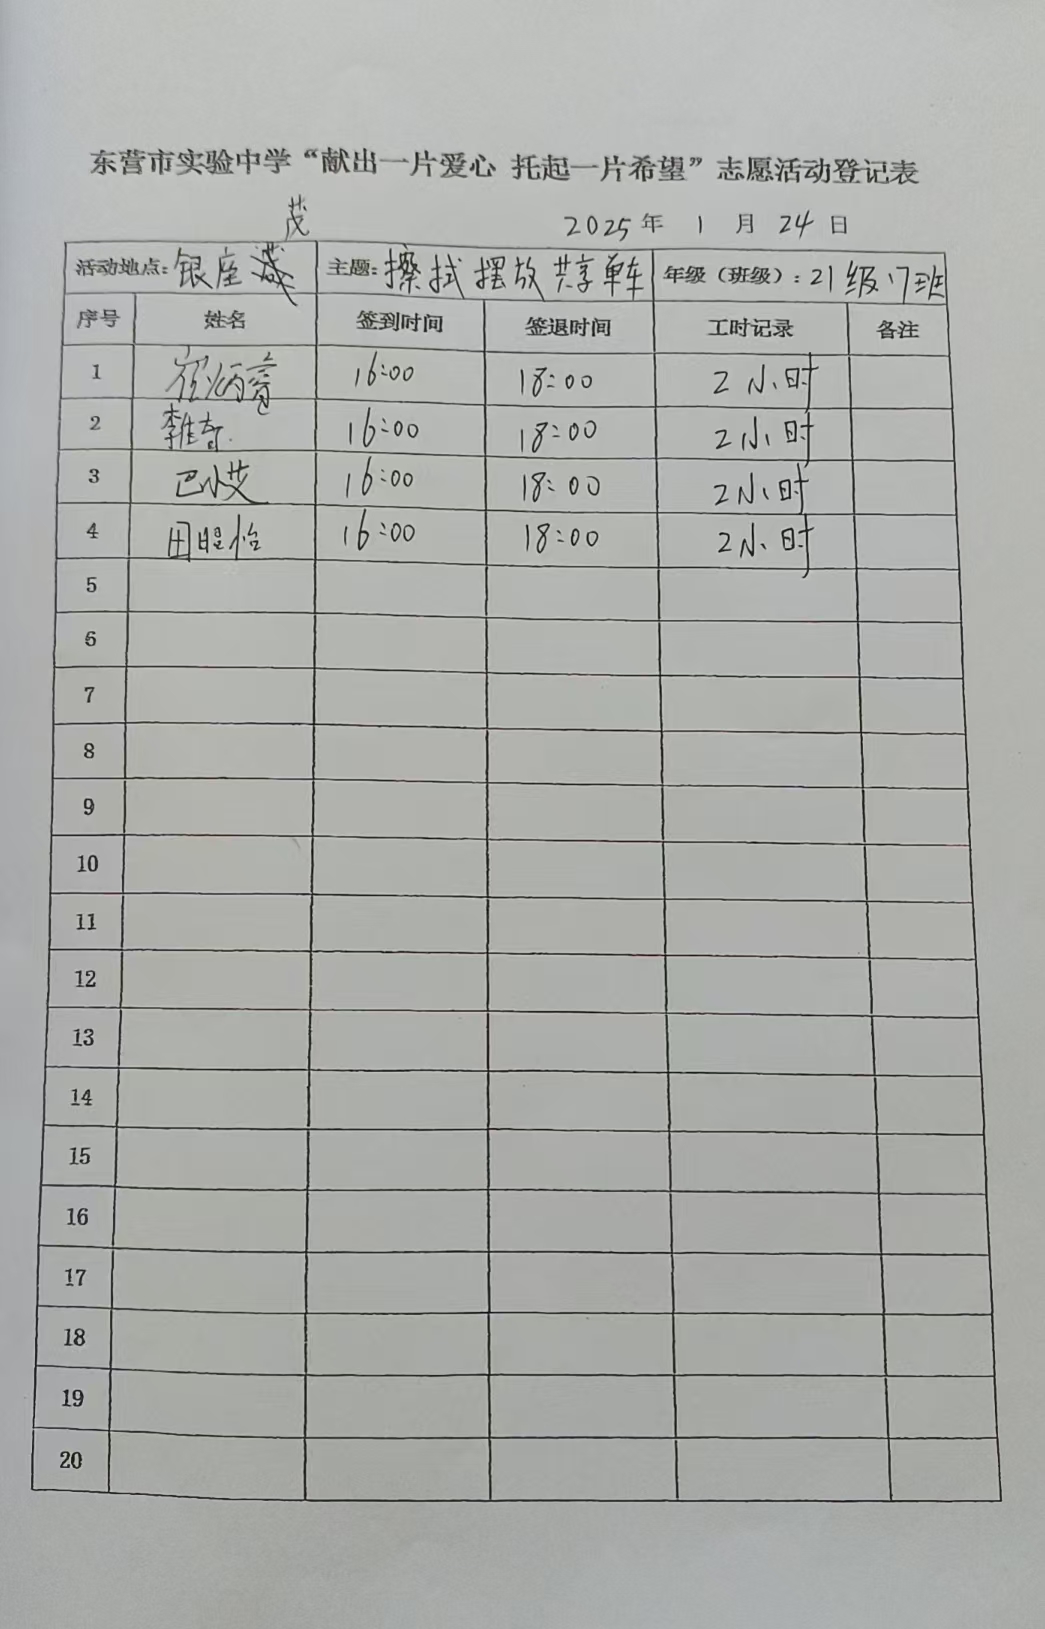 东营市实验中学“献出一片爱心 托起一片希望”志愿活动登记表
茂
2025年 1 月 24 日
活动地点：银座 主题：擦拭摆放共享单车 年级（班级）：21级17班
序号 姓名 签到时间 签退时间 工时记录 备注
1 崔炳睿 16:00 18:00 2小时
2 李佳奇 16:00 18:00 2小时
3 巴小艾 16:00 18:00 2小时
4 田昆怡 16:00 18:00 2小时
5
6
7
8
9
10
11
12
13
14
15
16
17
18
19
20